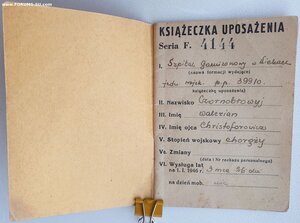 www.FORUMS-SU.com
KSIĄŻECZKA UPOSAŻENIA
Seria F. 4144
I. Szpital garnizonowy w Kielcach
(nazwa formacji wydającej
p.p. 39910
książeczkę uposażenia)
II. Nazwisko Czornobrowyj
III. Imię Walerian
IV. Imię ojca Christoforowicz
V. Stopień wojskowy chorąży
Va. Zmiany
(data i Nr rozkazu personalnego)
VI. Wysługa lat
na 1. I. 1946 r. 3 mce
na dzień mob.